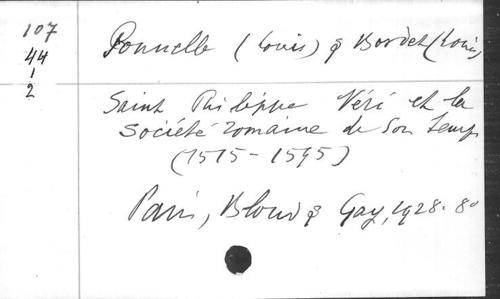 107
44
1
2
Ponnelle (Louis) & Bordet (Louis)
Saint Philippe Néri et la
Société romaine de son temps
(1515-1595)
Paris, Bloud & Gay, 1928. 8º